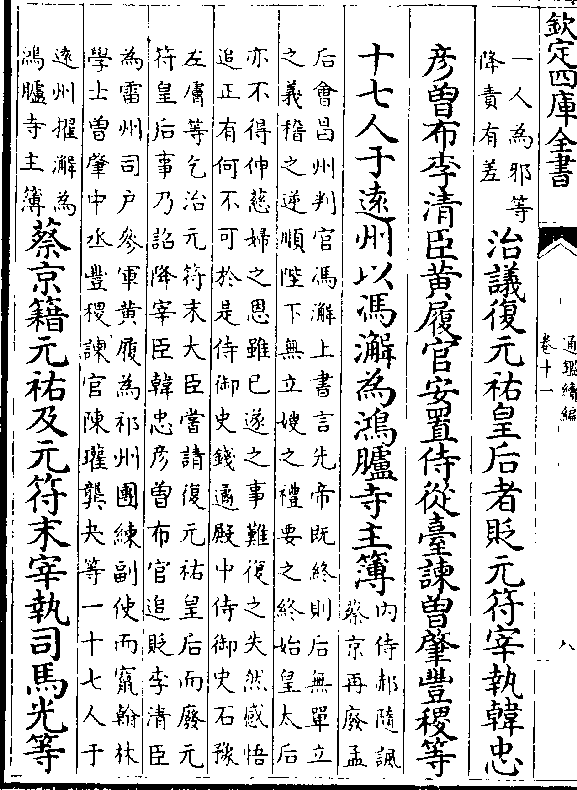 欽定四庫全書
通鑑續編
卷十一
八
一人為邪等
降責有差
治議復元祐皇后者貶元符宰執韓忠
彦曽布李清臣黄履官安置侍從臺諫曽肇豐稷等
十七人于遠州以馮澥為鴻臚寺主簿
内侍郝隨諷
蔡京再廢孟
后會昌州判官馮澥上書言先帝既終則后無單立
之義稽之逆順陛下無立嫂之禮要之終始皇太后
亦不得伸慈婦之恩雖已遂之事難復之失然感悟
追正有何不可於是侍御史錢遹殿中侍御史石豫
左膚等乞治元符末大臣嘗請復元祐皇后而廢元
符皇后事乃詔降宰臣韓忠彦曽布官追貶李清臣
為雷州司户參軍黄履為祁州團練副使而竄翰林
學士曽肇中丞豐稷諫官陳瓘龔夬等一十七人于
逺州擢澥為
鴻臚寺主簿
蔡京籍元祐及元符末宰執司馬光等